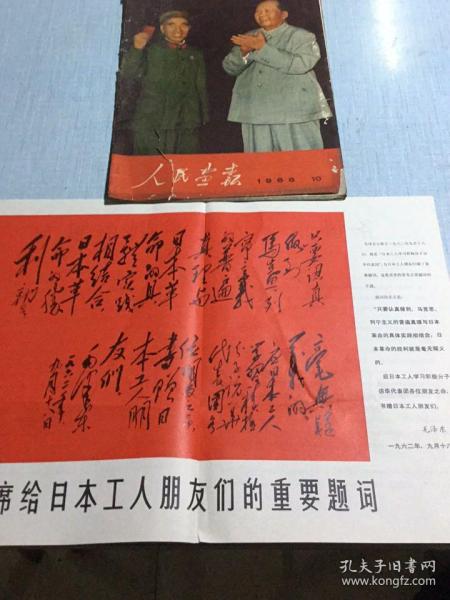 人民画报
1968 10
只要认真
做到
马克思列
宁主义
的普遍
真理与
日本革
命的具
体实践
相结合
日本革
命的胜
利就是
毫无疑
义的
应日本工人
学习积极
分子访华
代表团各
位朋友之命
书赠日
本工人朋
友们
毛泽东
一九六二年
九月十八日
“只要认真做到、马克思、
列宁主义的普遍真理与日本
革命的具体实践相结合，日
本革命的胜利就是毫无疑
义的。
应日本工人学习积极分子
访华代表团各位朋友之命，
书赠日本工人朋友们。
毛泽东
一九六二年、九月十八
席给日本工人朋友们的重要题词
孔夫子旧书网
www.kongfz.com